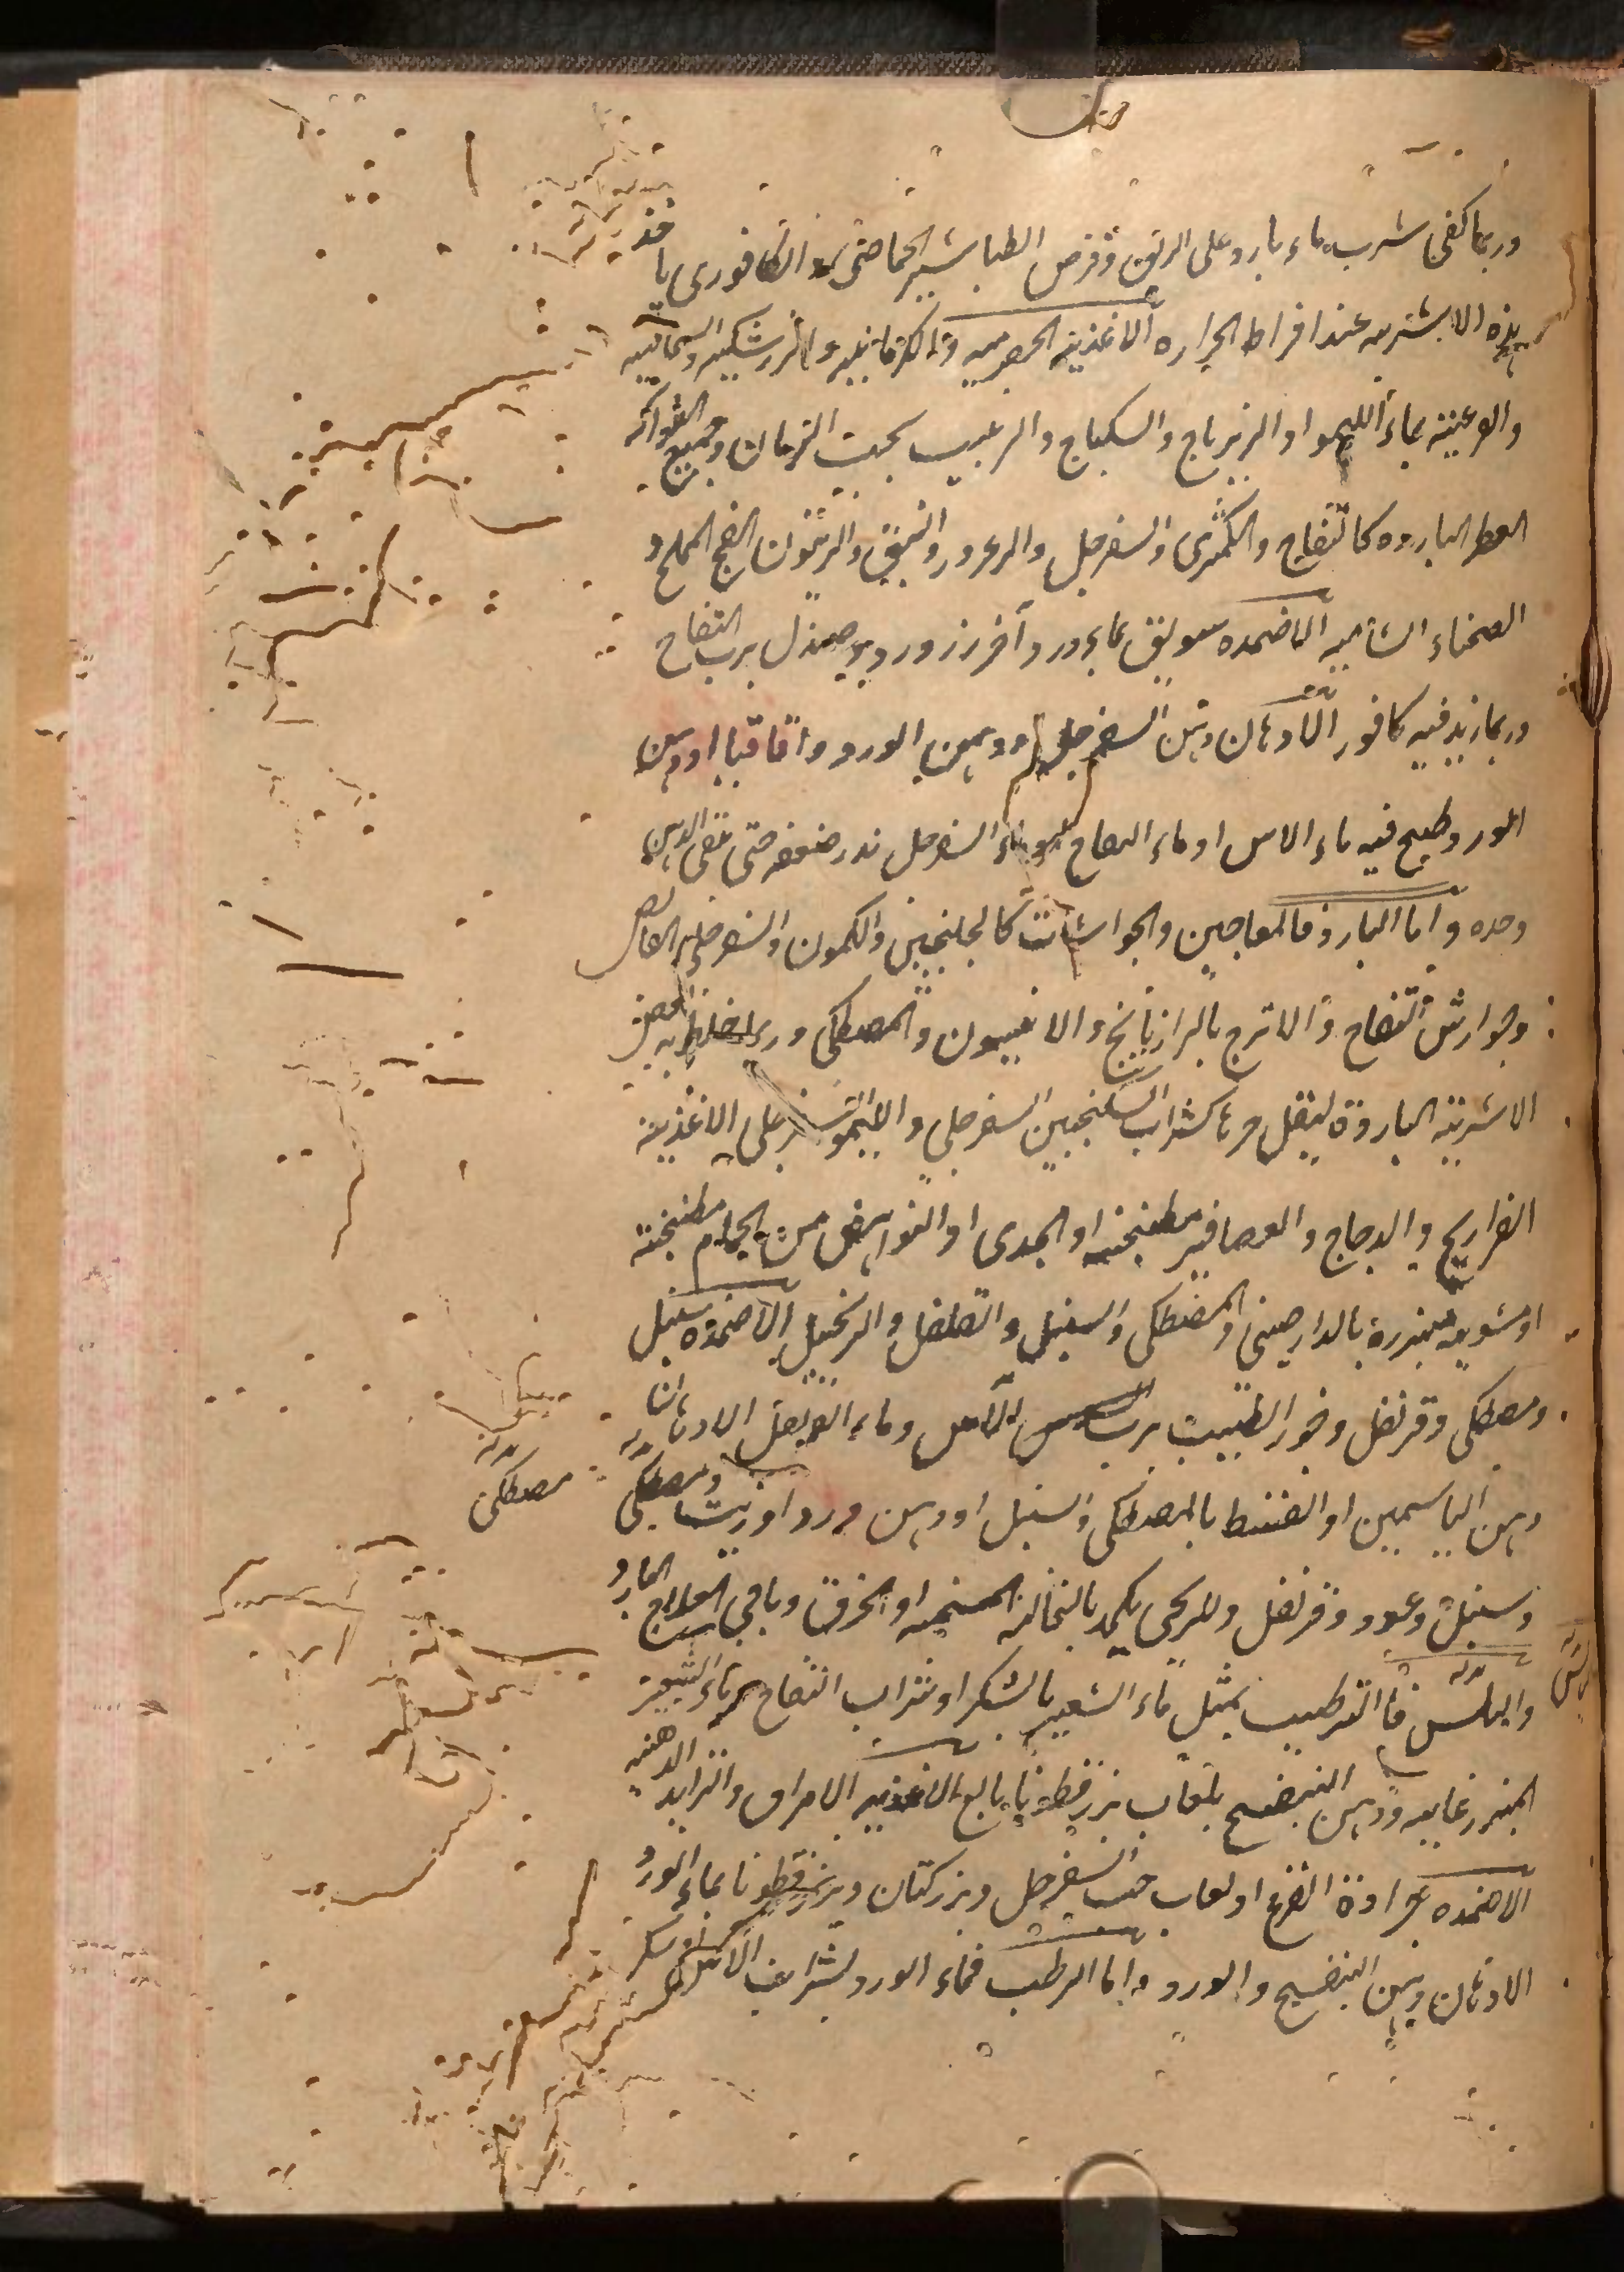 وربما كفى شرب ماء بارد على الريق وقرص الطباشير الحماضى او الكافورى باحد
هذه الاشربه عند افراط الحراره الاغذية الحصرميه والرمانيه والزرشكيه والسماقيه
والقرعية بماء الليمو او الزيرباج والسكباج والزبيب بحب الرمان وجميع الفواكه
العطر البارده كالتفاح والكمثرى والسفرجل والزعرور والنبق والزيتون الفج المملح و
الصحناء الشاميه الاضمده سويق بماء ورد وآخر زرورد وصندل برب التفاح
وربما زيد فيه كافور الادهان دهن السفرجل ودهن الورد واقاقيا او دهن
الورد وطبخ فيه ماء الاس او ماء التفاح او ماء السفرجل قدر ضعفه حتى بقى الدهن
وحده واما البارد فالمعاجين والجوارشات كالجلنجبين والكمون والسفرجلى القابض
وجوارش التفاح والاترج بالرازيانج والانيسون والمصطكى وربما خلط به بعض
الاشربة الباردة ليقل حرها كشراب السكنجبين السفرجلى والليمو السفرجلى الاغذية
الفراريج والدجاج والعصافير مطبخنه او الجدى او النواهض من الحمام مطبخنة
او مشويه مبزرة بالدارصينى والمصطكى والسنبل والفلفل والزنجبيل الاضمده سنبل
ومصطكى وقرنفل وخور الطيب برب الاس وماء القرنفل الادهان
دهن الياسمين او القسط بالمصطكى والسنبل او دهن ورد او زيت ومصطكى
مصطكى
وسنبل وعود وقرنفل وللريحى يكمد بالنخالة المسخنه او الخرق وباقى العلاج البارد
واليابس فالترطيب بمثل ماء الشعير بالسكر او شراب التفاح وماء الشعير
المبزر غايه ودهن البنفسج بلعاب بزر قطونا بالغ الاغذيه الامراق والثرايد الدهنيه
الاضمده جرادة القرع او لعاب حب السفرجل وبزر كتان وبزر قطونا بماء الورد
الادهان دهن البنفسج والورد واما الرطب فماء الورد بشراب الاس او سكر